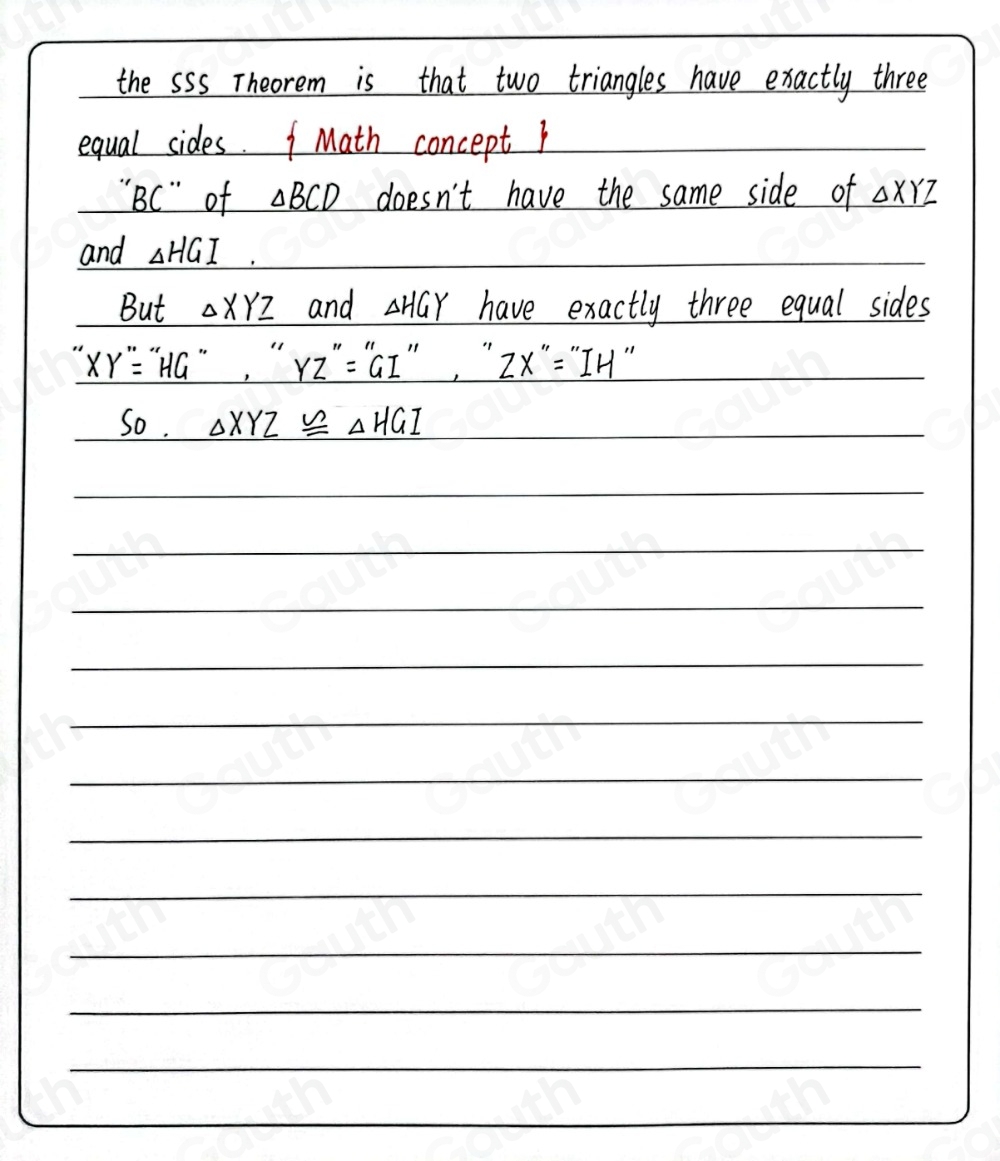 the SSS Theorem is that two triangles have exactly three
equal sides. { Math concept }
"BC" of △BCD doesn't have the same side of △XYZ
and △HGI .
But △XYZ and △HGY have exactly three equal sides
"XY"="HG" , "YZ"="GI" , "ZX"="IH"
So . △XYZ ≌ △HGI